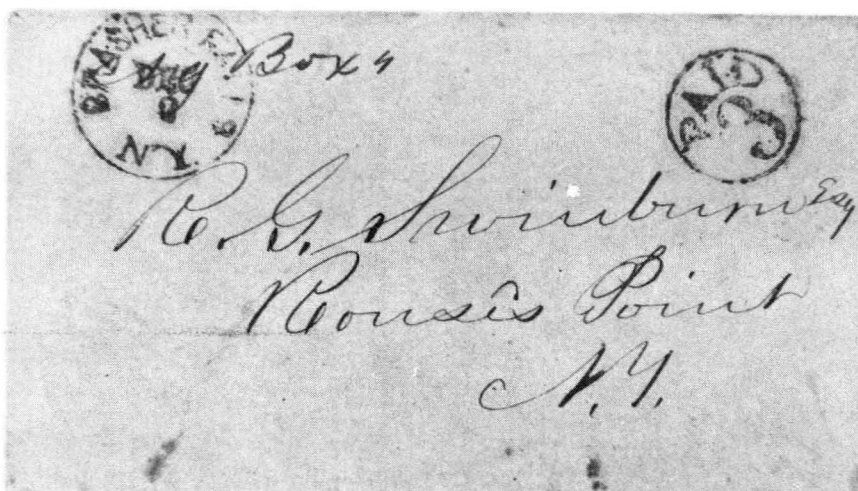 BRASHER FALLS
DEC
9
N.Y.
Box 4
PAID
3
R. G. Swinburn Esq
Rouses Point
N.Y.